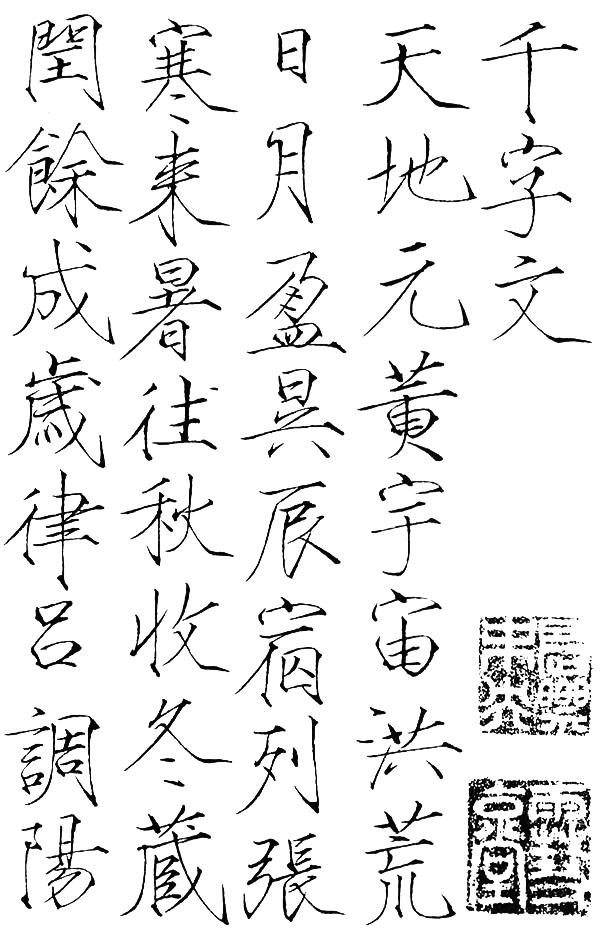 千字文
天地元黄宇宙洪荒
日月盈昃辰宿列張
寒来暑往秋收冬蔵
閏餘成歳律呂調陽